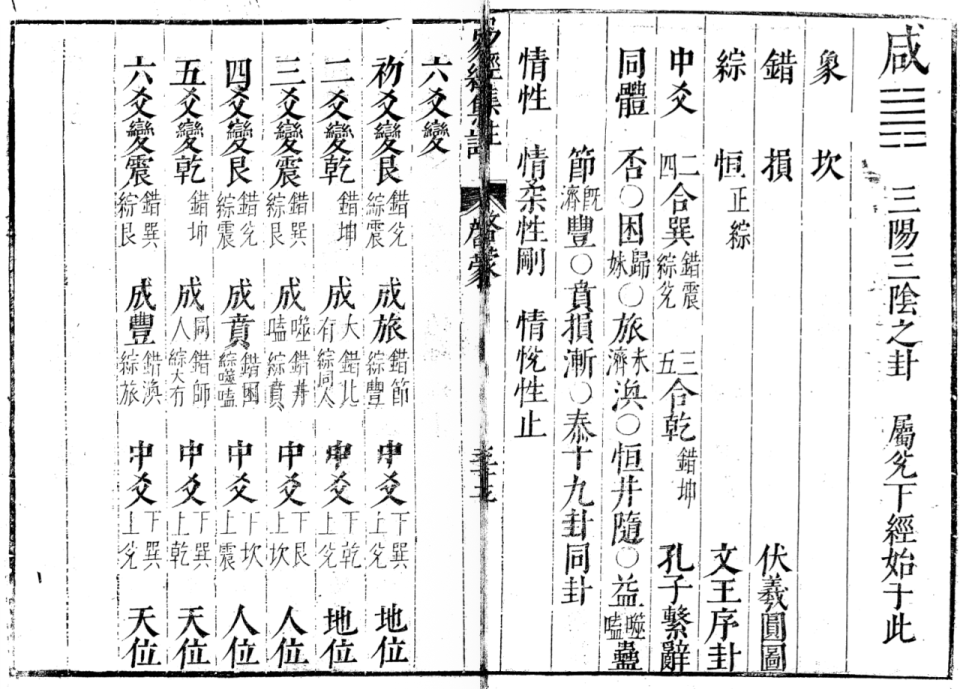 咸 三陽三陰之卦 屬兌下經始于此
象 坎
錯 損 伏羲圓圖
綜 恒正綜 文王序卦
中爻 二四合巽錯震綜兌 三五合乾錯坤 孔子繫辭
同體 否○困歸妹○旅未濟渙○恒井隨○益噬嗑蠱
節既濟豐○賁損漸○泰十九卦同卦
情性 情柔性剛 情悅性止
易經集註 啓蒙
六爻變
初爻變艮錯兌綜震 成旅錯節綜豐 中爻下巽上兌 地位
二爻變乾錯坤 成大有錯比綜同人 中爻下乾上兌 地位
三爻變震錯巽綜艮 成噬嗑錯井綜賁 中爻下艮上坎 人位
四爻變艮錯兌綜震 成賁錯困綜噬嗑 中爻下坎上震 人位
五爻變乾錯坤 成同人錯師綜大有 中爻下巽上乾 天位
六爻變震錯巽綜艮 成豐錯渙綜旅 中爻下巽上兌 天位